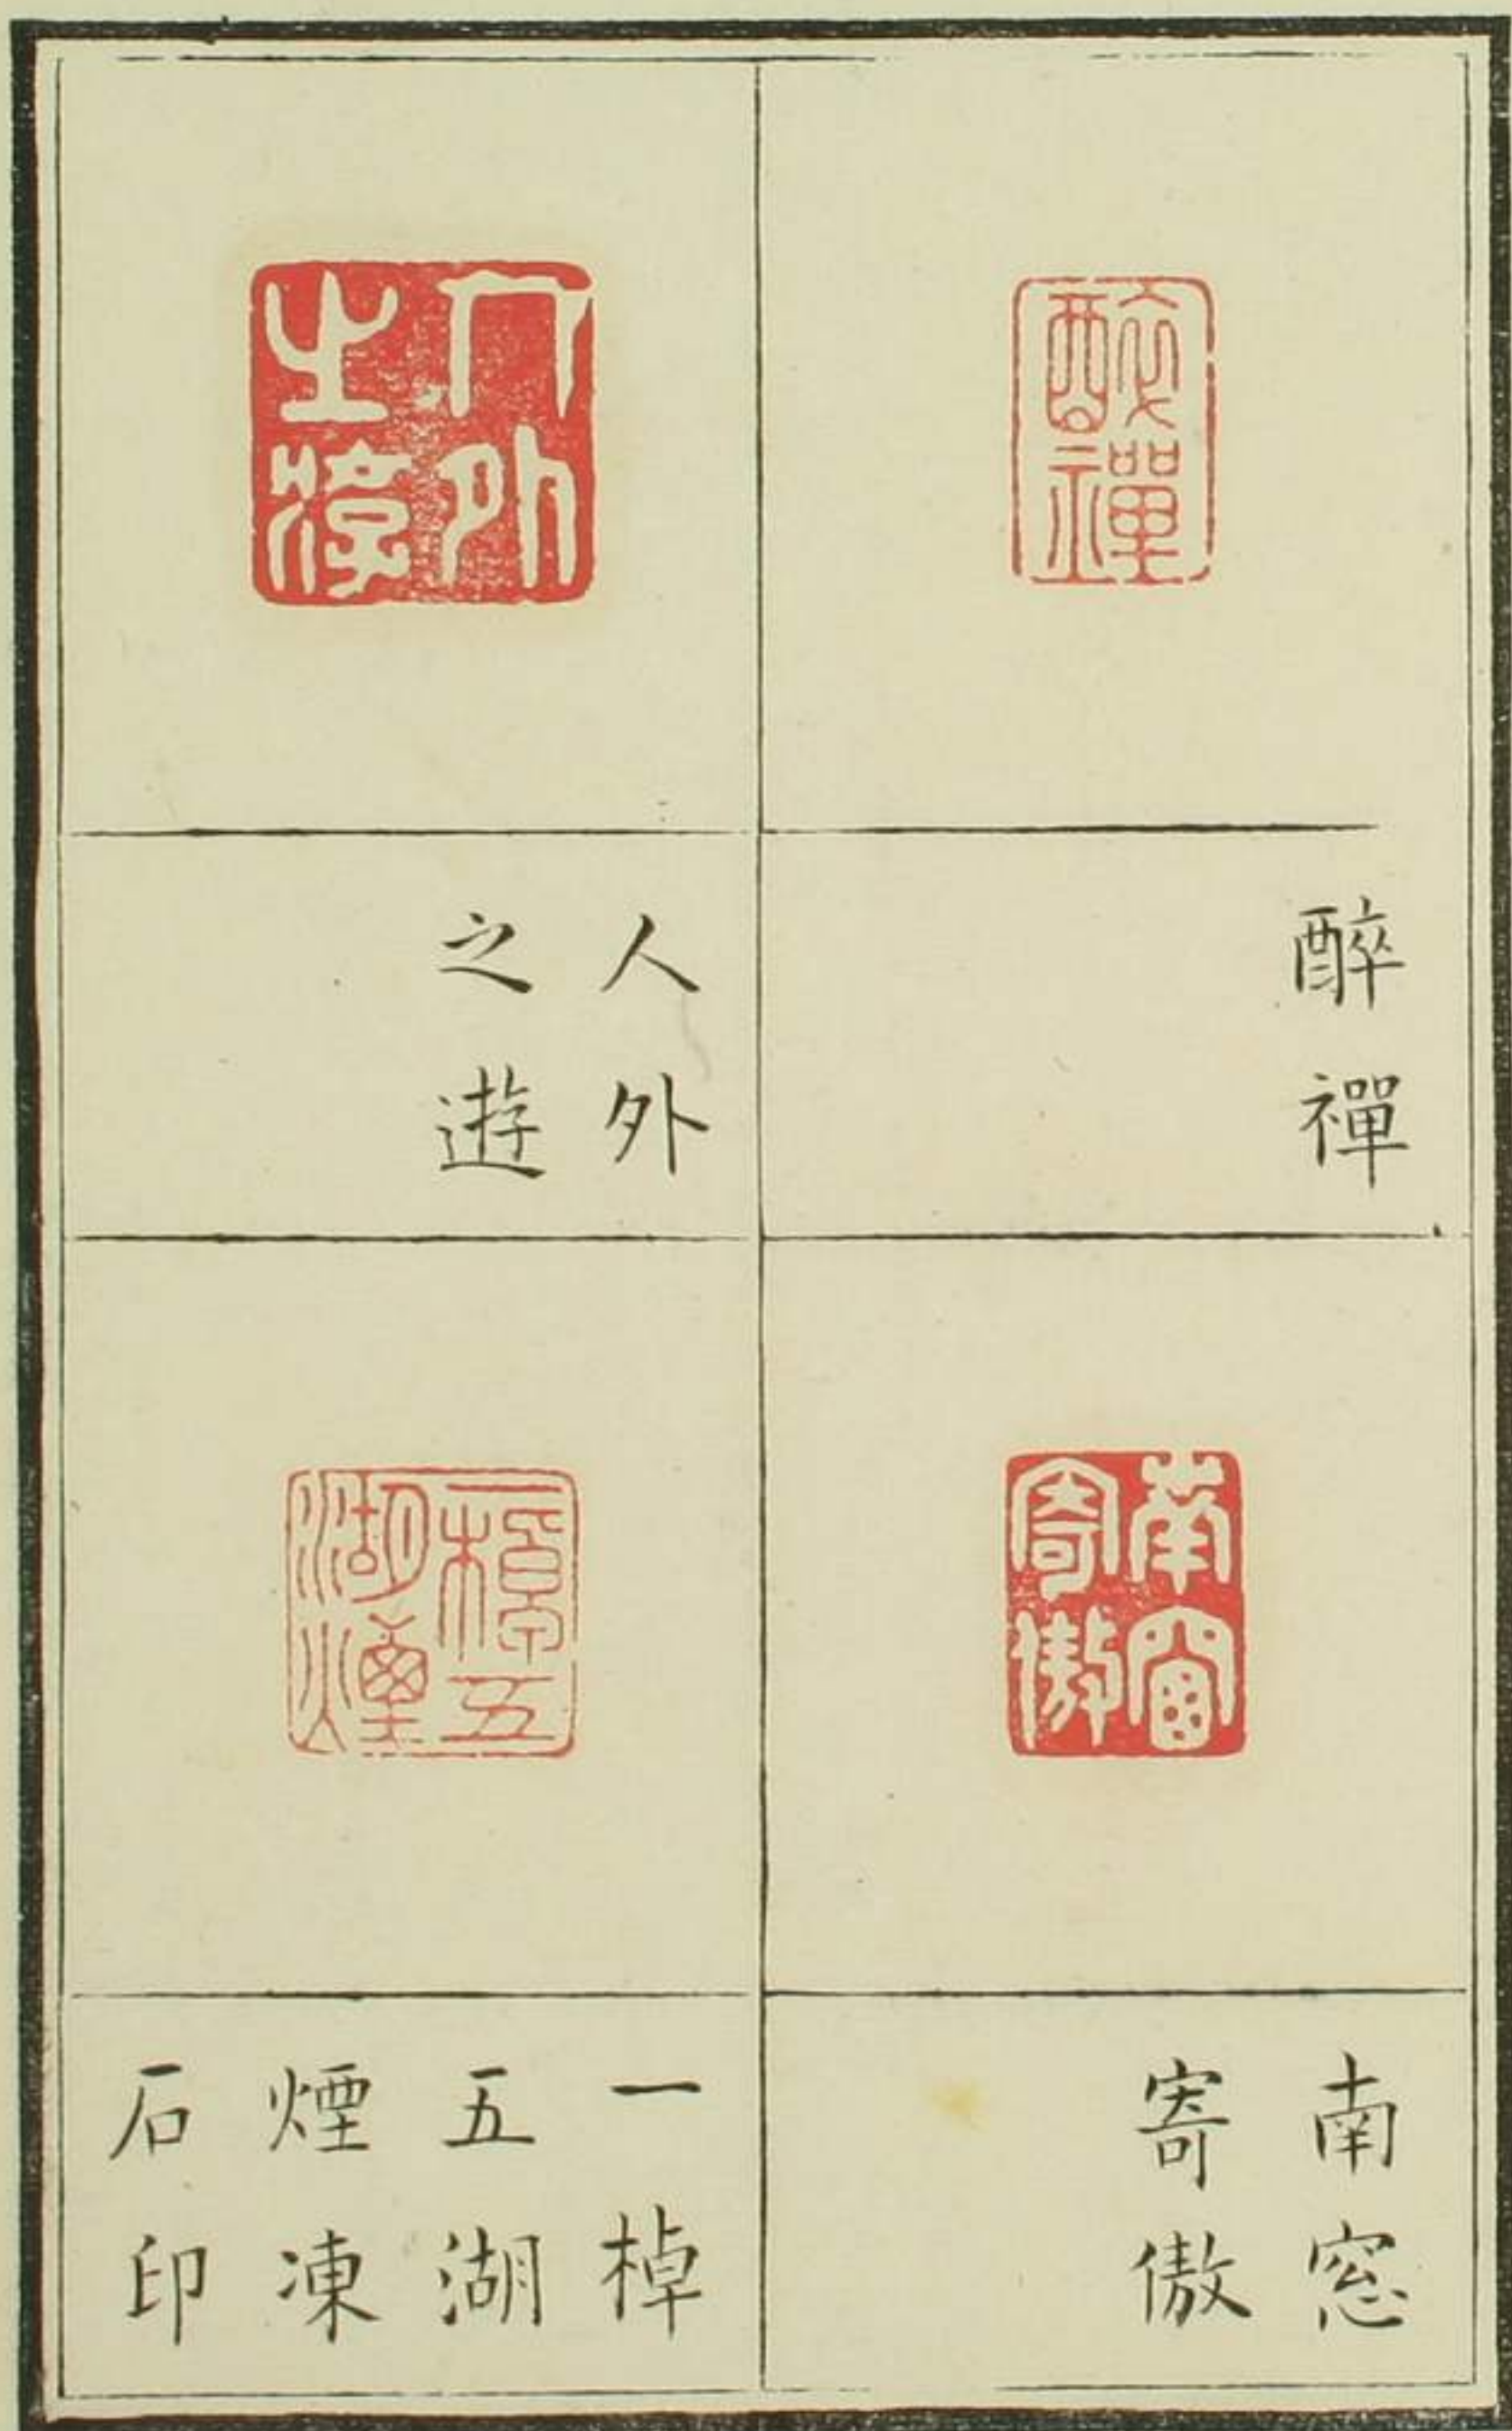 醉禪
醉禪
南窓寄傲
南窓
寄傲
人外之遊
人外
之遊
一棹五湖煙
一棹
五湖
煙凍
石印